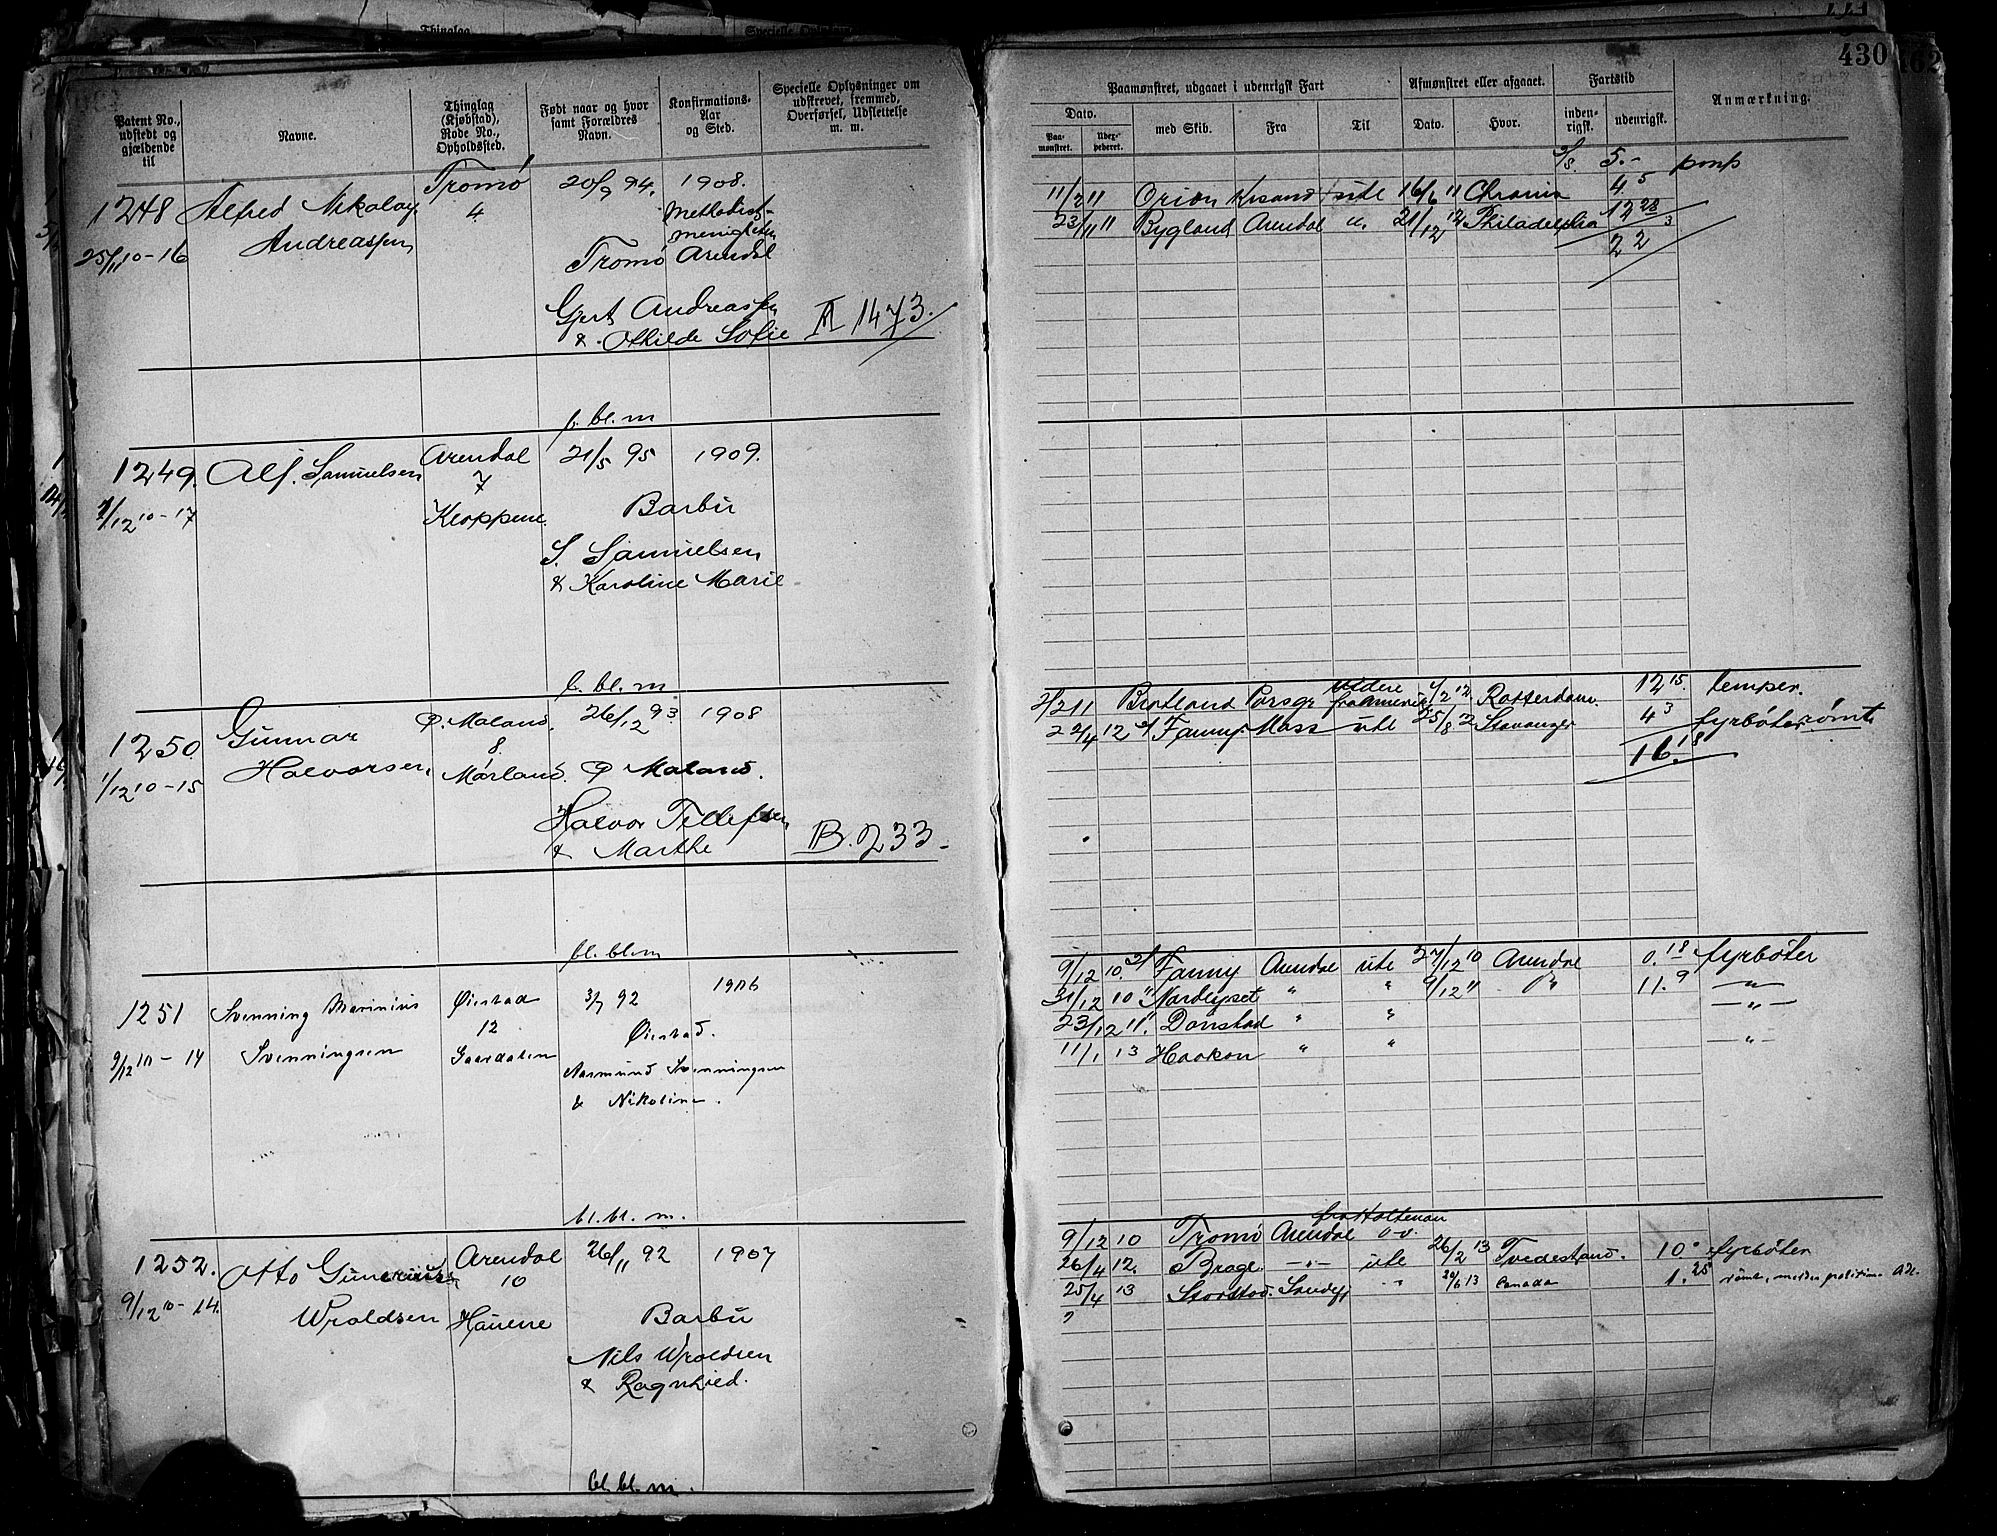 430
Patent No., udstedt og gjældende til
Navne.
Thinglag (Kjøbstad), Rode No., Opholdssted.
Født naar og hvor samt Forældres Navn.
Konfirmations-Aar og Sted.
Specielle Oplysninger om udskrevet, fremmed, Overførsel, Udslettelse m. m.
1248
25/11 10-16
Alfred Nikolay
Andreassen
Tromø
4
20/9 94.
Tromø
Gjert Andreassen
& Othilde Sofie
1908.
Methodist-
menigheten
Arendal
A 1473.
f. bl. m
1249.
1/12 10-17
Alf. Samuelsen
Arendal
7
Kloppene
21/5 95
Barbu
S. Samuelsen
& Karoline Marie
1909.
b. bl. m
1250
1/12 10-15
Gunnar
Halvorsen
Ø. Moland.
8.
Mørland.
26/12 93
Ø Moland.
Halvor Tellefsen
& Marthe
1908
B. 233.
bl. bl. m
1251
9/12 10-14
Svenning Marinius
Svenningsen
Øiestad
12
Gaardalen
3/7 92
Øiestad.
Aasmund Svenningsen
& Nikoline.
1906
bl. bl. m.
1252.
9/12 10-14.
Otto Gunerius
Wroldsen
Arendal
10
Hauene
26/11 92
Barbu
Nils Wroldsen
& Ragnhild.
1907
bl. bl. m.
Paamønstret, udgaaet i udenrigsk Fart
Afmønstret eller afgaaet.
Fartstid
Anmærkning.
Dato.
Paa-mønstret.
Udex-pederet.
med Skib.
Fra
Til
Dato.
Hvor.
inden-rigsk.
udenrigsk.
5.-
11/2 11 Orion Krsand ute 16/6 11 Chrania 4 5
23/11 11 Bygland Arendal u. 21/12 12 Philadelphia 12 28
22 3
2/2 11 Brotland Porsgr videre fra Amerika 4/2 12 Rotterdam. 12 15. temper.
22/4 12 Fanny Moss ute 25/8 12 Stavanger 4 3 fyrbøter rømt
16. 18
9/12 10 Fanny Arendal ute 27/12 10 Arendal 0. 18 fyrbøter
31/12 10 Nordlyset " " 9/12 11 11. 9 -"-
23/12 11. Dønstad " " -"-
11/1 13 Haakon " " -"-
fra Holtenau
9/12 10 Tromø Arendal
26/4 12. Brage -"- ute 26/2 13 Tvedestrand. 10 " fyrbøter
25/4 13 Storstad. Sandefj -"- 20/6 13 Canada 1. 25 rømt,